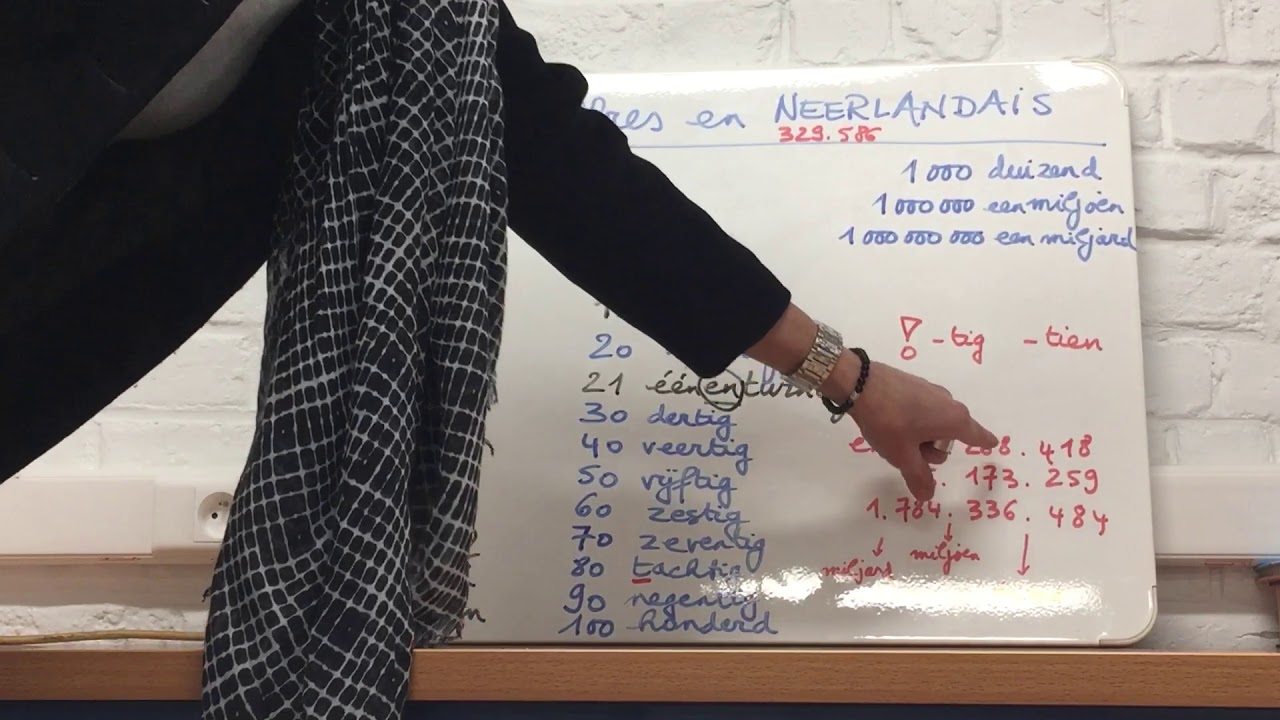 en NEERLANDAIS
329.586
1 000 duizend
1 000 000 een miljoen
1 000 000 000 een miljard
! -tig -tien
20
21 éénentwin
30 dertig
40 veertig
50 vijftig
60 zestig
70 zeventig
80 tachtig
90 negentig
100 honderd
418
173.259
1.784.336.484
miljard miljoen